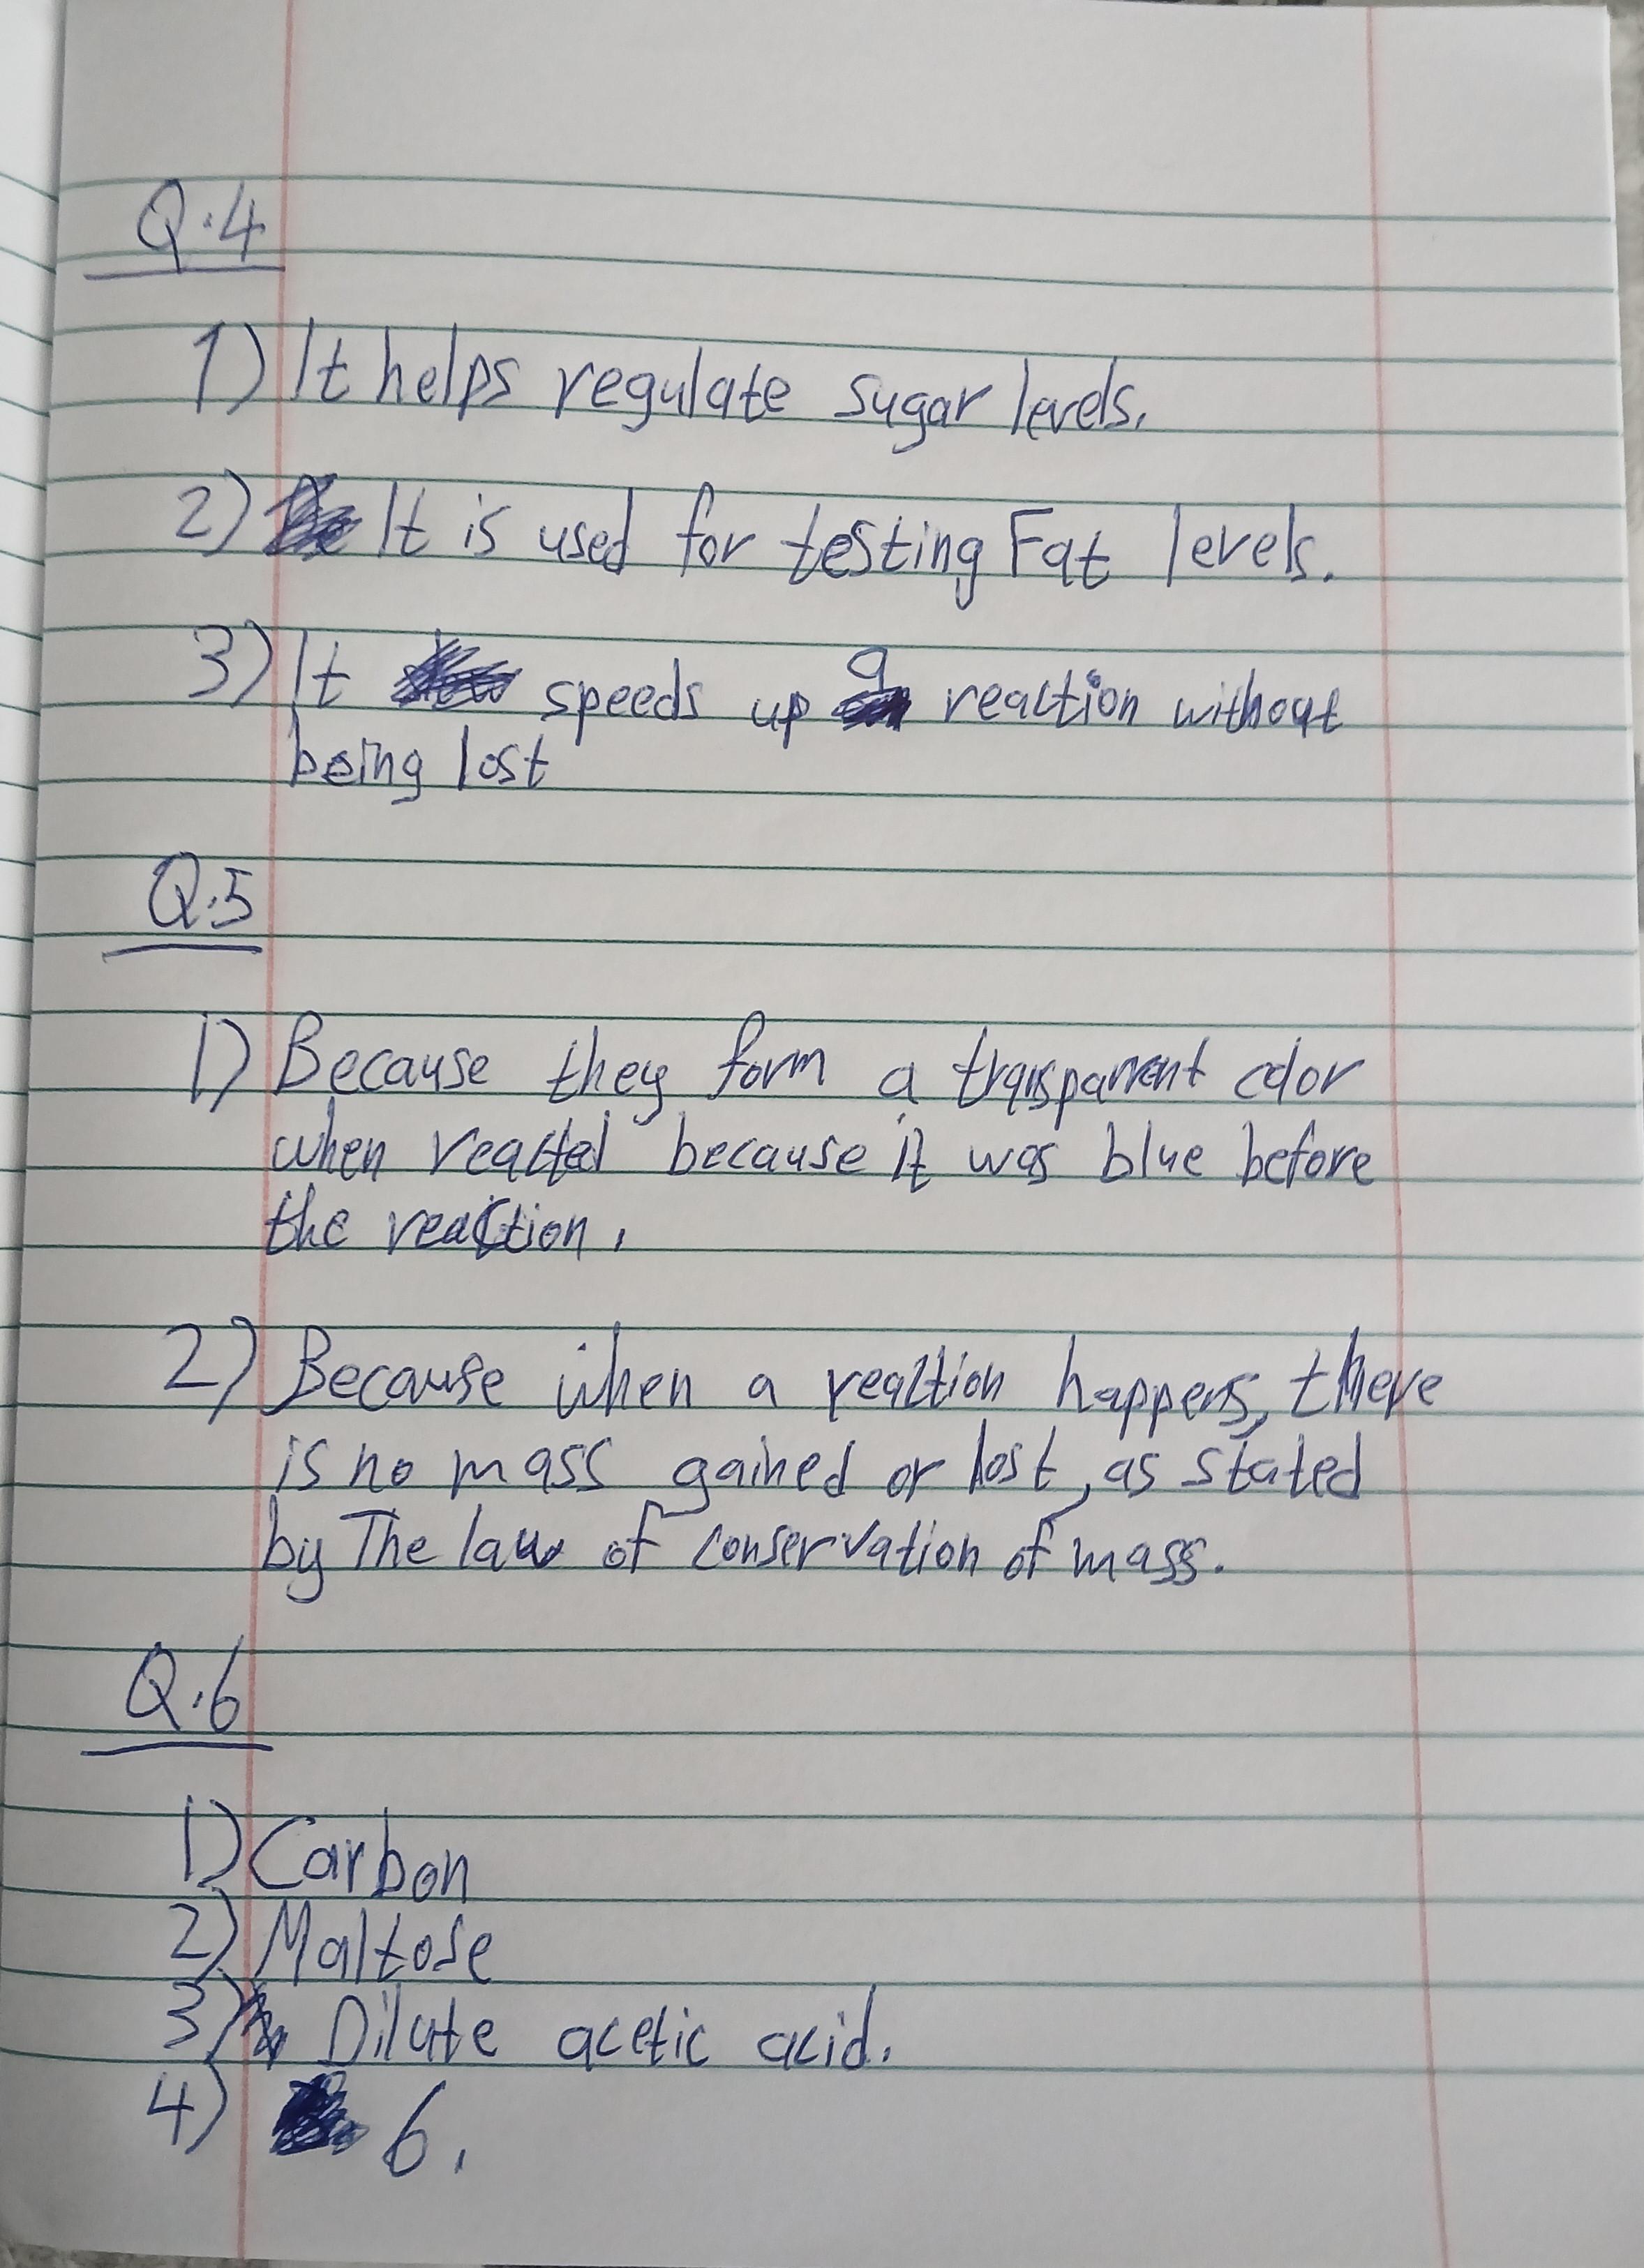 Q.4
1) It helps regulate sugar levels.
2) It is used for testing Fat levels.
3) It speeds up a reaction without
being lost
Q.5
1) Because they form a transparrent color
when reacted because it was blue before
the reaction.
2) Because when a reaction happens, there
is no mass gained or lost, as stated
by The law of conservation of mass.
Q.6
1) Carbon
2) Maltose
3) Dilute acetic acid.
4) 6.